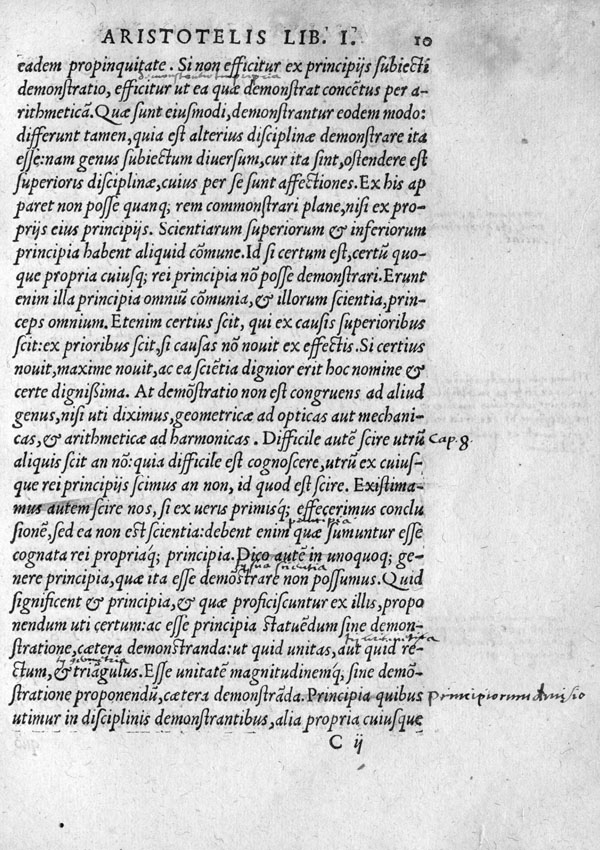 ARISTOTELIS LIB. I. 10
eadem propinquitate. Si non efficitur ex principijs subiecti
demonstratio, efficitur ut ea quæ demonstrat concētus per a-
rithmeticā. Quæ sunt eiusmodi, demonstrantur eodem modo:
differunt tamen, quia est alterius disciplinæ demonstrare ita
esse: nam genus subiectum diuersum, cur ita sint, ostendere est
superioris disciplinæ, cuius per se sunt affectiones. Ex his ap
paret non posse quanq; rem commonstrari plane, nisi ex pro-
prijs eius principijs. Scientiarum superiorum & inferiorum
principia habent aliquid cōmune. Id si certum est, certū quo-
que propria cuiusq; rei principia nō posse demonstrari. Erunt
enim illa principia omniū cōmunia, & illorum scientia, prin-
ceps omnium. Etenim certius scit, qui ex causis superioribus
scit: ex prioribus scit, si causas nō nouit ex effectis. Si certius
nouit, maxime nouit, ac ea sciētia dignior erit hoc nomine &
certe dignißima. At demōstratio non est congruens ad aliud
genus, nisi uti diximus, geometricæ ad opticas aut mechani-
cas, & arithmeticæ ad harmonicas. Difficile autē scire utrū Cap. 8.
aliquis scit an nō: quia difficile est cognoscere, utrū ex cuius-
que rei principijs scimus an non, id quod est scire. Existima-
mus autem scire nos, si ex ueris primisq; effecerimus conclu
sionē, sed ea non est scientia: debent enim quæ sumuntur esse
principia
cognata rei propriaq; principia. Dico autē in unoquoq; ge-
nere principia, quæ ita esse demōstrare non possumus. Quid
significent & principia, & quæ proficiscuntur ex illis, propo
nendum uti certum: ac esse principia statuēdum sine demon-
stratione, cætera demonstranda: ut quid unitas, aut quid re-
ctum, & triāgulus. Esse unitatē magnitudinemq; sine demō-
stratione proponendū, cætera demonstrāda. Principia quibus Principiorum diuisio
utimur in disciplinis demonstrantibus, alia propria cuiusque
C ij